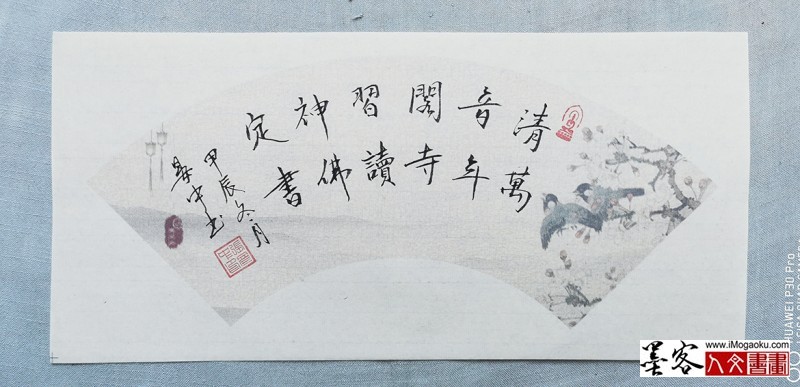 清萬
音年
閣寺
習讀
神佛
定書
甲辰冬月
中书
www.iMogaoku.com
墨客人文書畫
HUAWEI P30 Pro